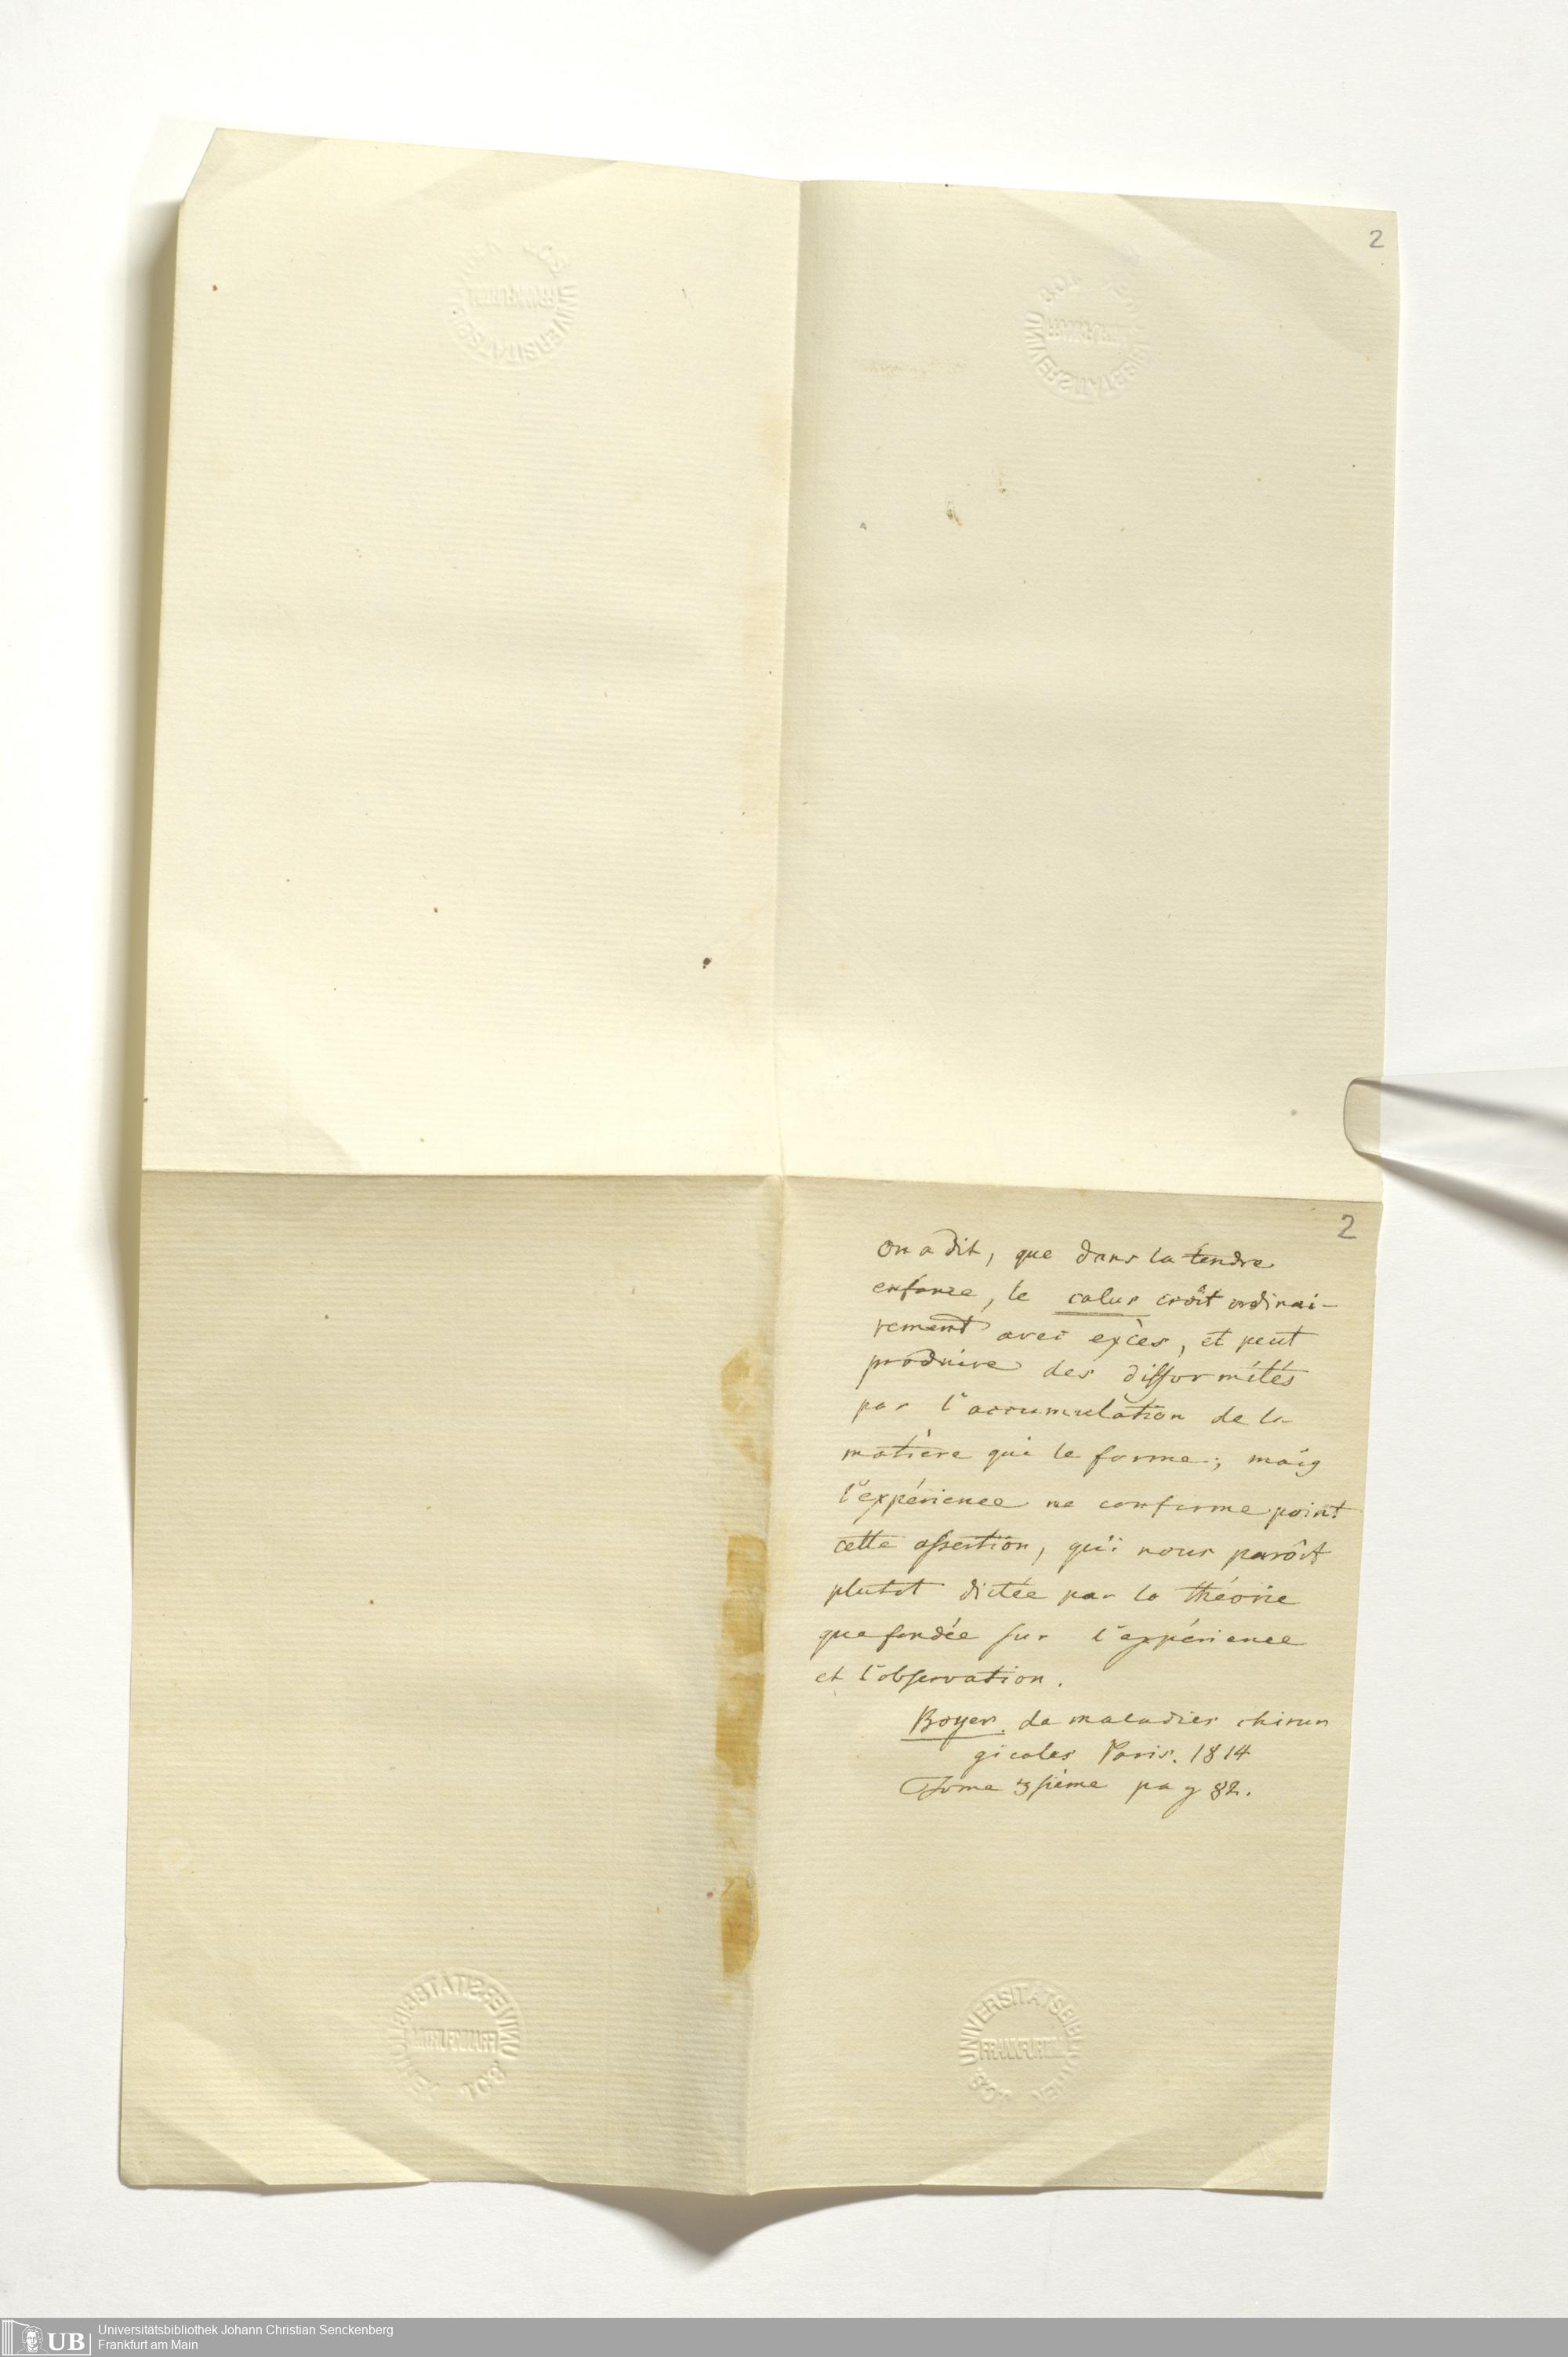 2
2
On a dit, que dans la tendre
enfance, le calus croît ordinai-
rement avec excès, et peut
produire des difformités
par l'accumulation de la
matière qui le forme; mais
l'expérience ne confirme point
cette assertion, qui nous parôit
plutot dictée par la théorie
que fondée sur l'expérience
et l'observation.
Boyer, de maladies chirur
gicales Paris. 1814
Tome 3sième pag 82.
UNIVERSITÄTSBIBLIOTHEK J.C.S.
FRANKFURT M.
UB
Universitätsbibliothek Johann Christian Senckenberg
Frankfurt am Main